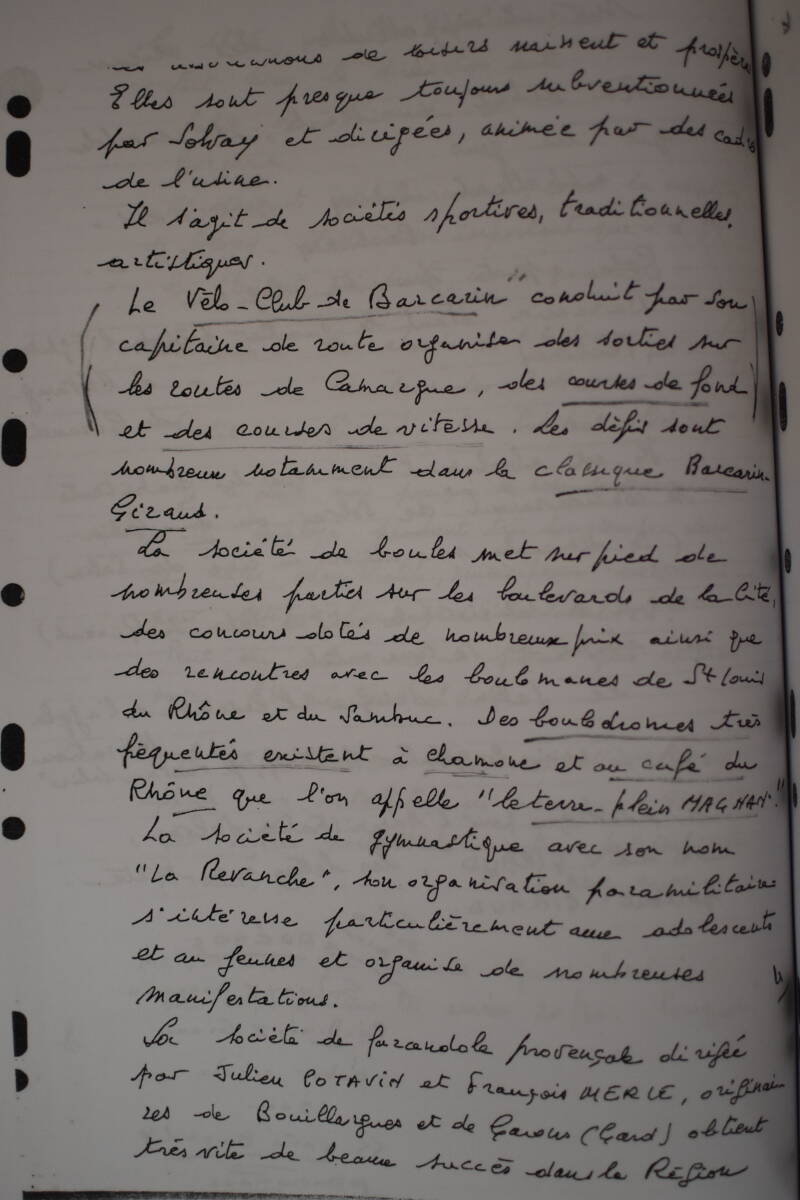 de loisirs naissent et prospère
Elles sont presque toujours subventionnées
par Solvay et dirigées, animée par des cadres
de l'usine.
Il s'agit de sociétés sportives, traditionnelles,
artistiques.
Le Vélo-Club de Barcarin" conduit par son
capitaine de route organise des sorties sur
les routes de Camargue, des courses de fond
et des courses de vitesse. Les défis sont
nombreux notamment dans la classique Barcarin-
Giraud.
La société de boules met sur pied de
nombreuses parties sur les boulevards de la Cité,
des concours dotés de nombreux prix ainsi que
des rencontres avec les boulomanes de St Louis
du Rhône et du Sambuc. Des boulodromes très
fréquentés existent à Chamone et au café du
Rhône que l'on appelle "le terre-plein MAGNAN."
La société de gymnastique avec son nom
"La Revanche", son organisation paramilitaire
s'intéresse particulièrement aux adolescents
et au jeunes et organise de nombreuses
manifestations.
La société de farandole provençale dirigée
par Julien COTAVIN et François MERLE, originai-
res de Bouillargues et de Garons (Gard) obtient
très vite de beaux succès dans la Région